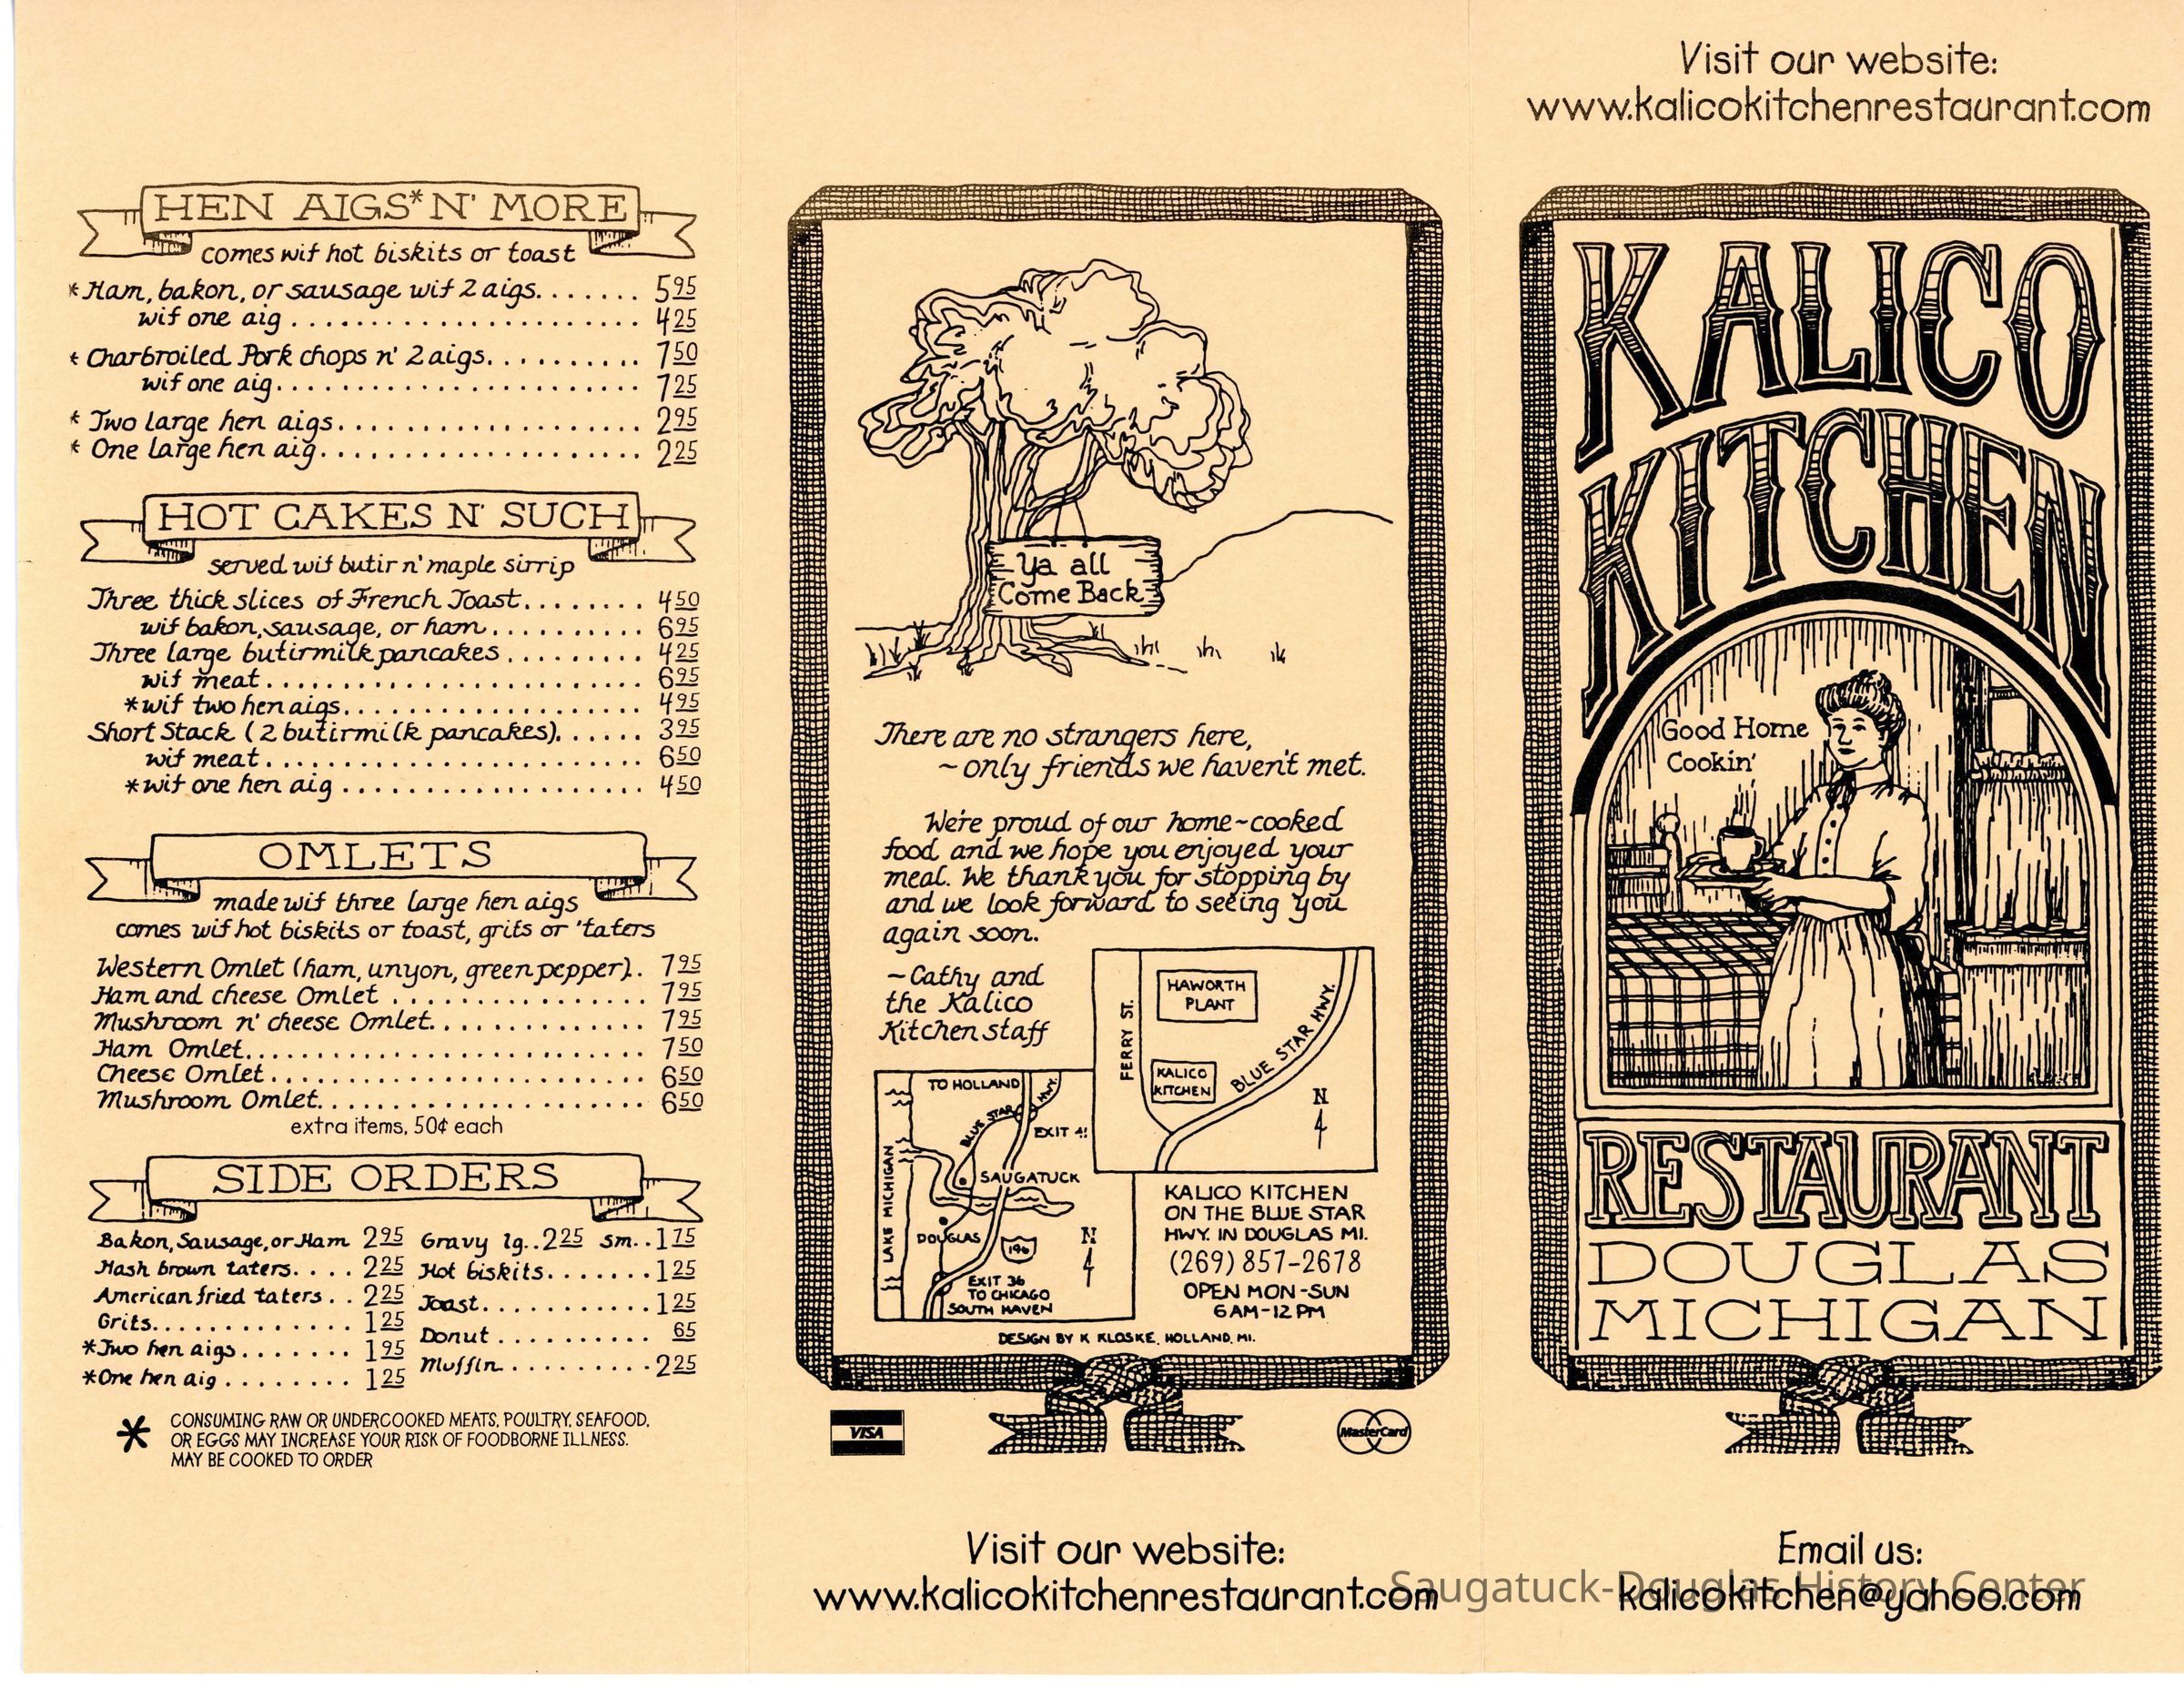 HEN AIGS* N' MORE
comes wif hot biskits or toast
* Ham, bakon, or sausage wif 2 aigs....... 5 95
wif one aig ...................... 4 25
* Charbroiled Pork chops n' 2 aigs.......... 7 50
wif one aig....................... 7 25
* Two large hen aigs................... 2 95
* One large hen aig.................... 2 25
HOT CAKES N' SUCH
served wif butir n' maple sirrip
Three thick slices of French Toast........ 4 50
wif bakon, sausage, or ham........... 6 95
Three large butirmilk pancakes ......... 4 25
wif meat........................ 6 95
*wif two hen aigs................... 4 95
Short Stack (2 butirmilk pancakes)....... 3 95
wif meat........................ 6 50
*wif one hen aig ................... 4 50
OMLETS
made wif three large hen aigs
comes wif hot biskits or toast, grits or 'taters
Western Omlet (ham, unyon, green pepper).. 7 95
Ham and cheese Omlet ................ 7 95
Mushroom n' cheese Omlet............. 7 95
Ham Omlet.......................... 7 50
Cheese Omlet........................ 6 50
Mushroom Omlet..................... 6 50
extra items, 50¢ each
SIDE ORDERS
Bakon, Sausage, or Ham 2 95
Hash brown taters.... 2 25
American fried taters.. 2 25
Grits............. 1 25
*Two hen aigs....... 1 95
*One hen aig ........ 1 25
Gravy lg..2 25 sm..1 75
Hot biskits.......1 25
Toast...........1 25
Donut .......... 65
Muffin..........2 25
* CONSUMING RAW OR UNDERCOOKED MEATS, POULTRY, SEAFOOD,
OR EGGS MAY INCREASE YOUR RISK OF FOODBORNE ILLNESS.
MAY BE COOKED TO ORDER
Ya all
Come Back
There are no strangers here,
~ only friends we haven't met.
We're proud of our home~cooked
food and we hope you enjoyed your
meal. We thank you for stopping by
and we look forward to seeing you
again soon.
~ Cathy and
the Kalico
Kitchen staff
HAWORTH
PLANT
FERRY ST.
BLUE STAR HWY.
KALICO
KITCHEN
N
TO HOLLAND
BLUE STAR HWY.
EXIT 41
SAUGATUCK
LAKE MICHIGAN
DOUGLAS
196
N
EXIT 36
TO CHICAGO
SOUTH HAVEN
KALICO KITCHEN
ON THE BLUE STAR
HWY. IN DOUGLAS MI.
(269) 857-2678
OPEN MON-SUN
6 AM-12 PM
DESIGN BY K KLOSKE, HOLLAND, MI.
VISA
MasterCard
Visit our website:
www.kalicokitchenrestaurant.com
Visit our website:
www.kalicokitchenrestaurant.com
KALICO
KITCHEN
Good Home
Cookin'
RESTAURANT
DOUGLAS
MICHIGAN
Email us:
kalicokitchen@yahoo.com
Saugatuck-Douglas History Center